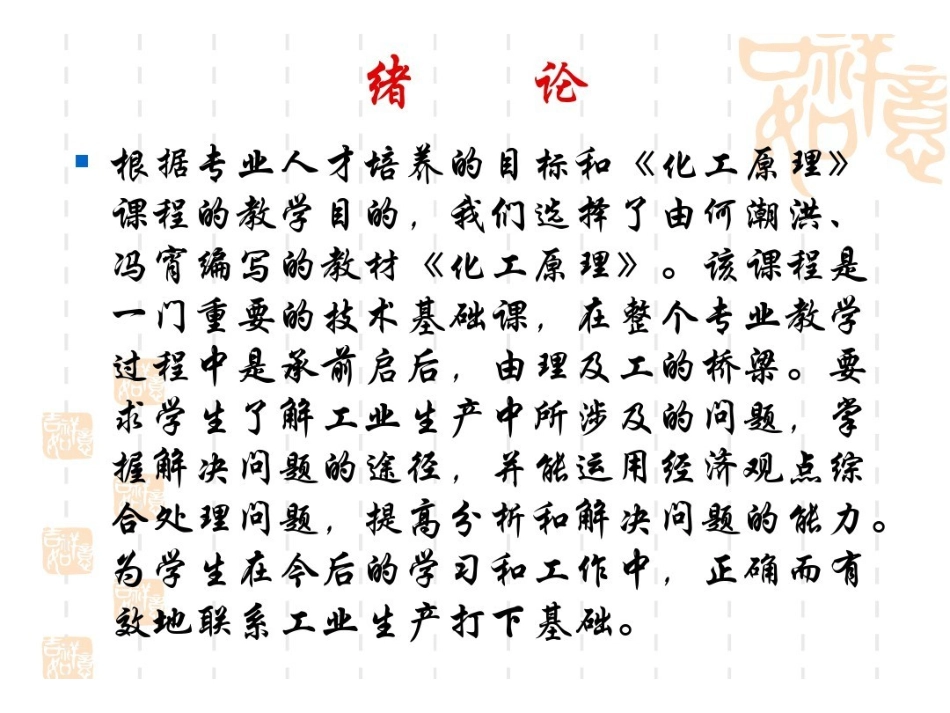 绪 论
根据专业人才培养的目标和《化工原理》
课程的教学目的，我们选择了由何潮洪、
冯霄编写的教材《化工原理》。该课程是
一门重要的技术基础课，在整个专业教学
过程中是承前启后，由理及工的桥梁。要
求学生了解工业生产中所涉及的问题，掌
握解决问题的途径，并能运用经济观点综
合处理问题，提高分析和解决问题的能力。
为学生在今后的学习和工作中，正确而有
效地联系工业生产打下基础。
吉祥如意
吉祥如意
吉祥如意
吉祥如意